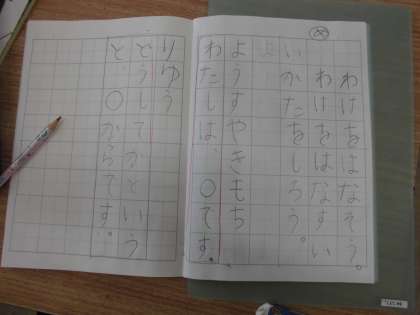 め
わけをはなそう。
わけをはなすい
いかたをしろう。
ようすやきもち
わたしは、○です。
りゆう
どうしてかという
と、○からです。